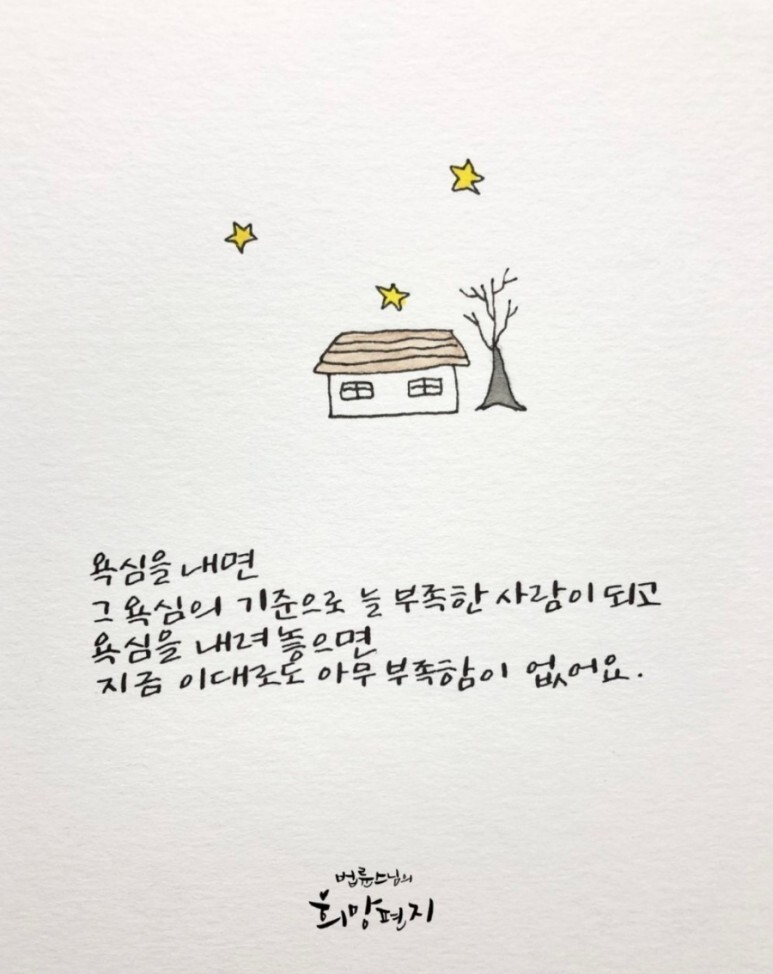 욕심을 내면
그 욕심의 기준으로 늘 부족한 사람이 되고
욕심을 내려놓으면
지금 이대로도 아무 부족함이 없어요.
법륜스님의
희망편지